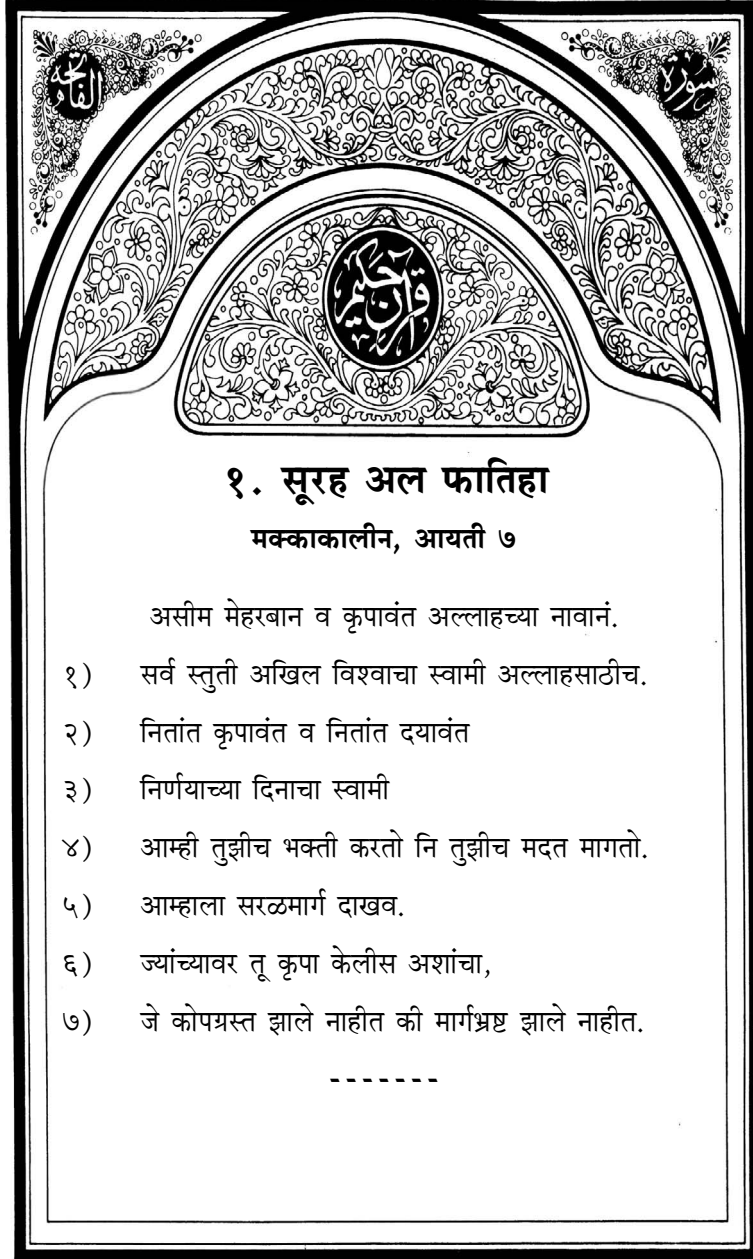 سورة
الفاتحة
قرآن حكيم
१. सूरह अल फातिहा
मक्काकालीन, आयती ७
असीम मेहरबान व कृपावंत अल्लाहच्या नावानं.
१) सर्व स्तुती अखिल विश्वाचा स्वामी अल्लाहसाठीच.
२) नितांत कृपावंत व नितांत दयावंत
३) निर्णयाच्या दिनाचा स्वामी
४) आम्ही तुझीच भक्ती करतो नि तुझीच मदत मागतो.
५) आम्हाला सरळमार्ग दाखव.
६) ज्यांच्यावर तू कृपा केलीस अशांचा,
७) जे कोपग्रस्त झाले नाहीत की मार्गभ्रष्ट झाले नाहीत.